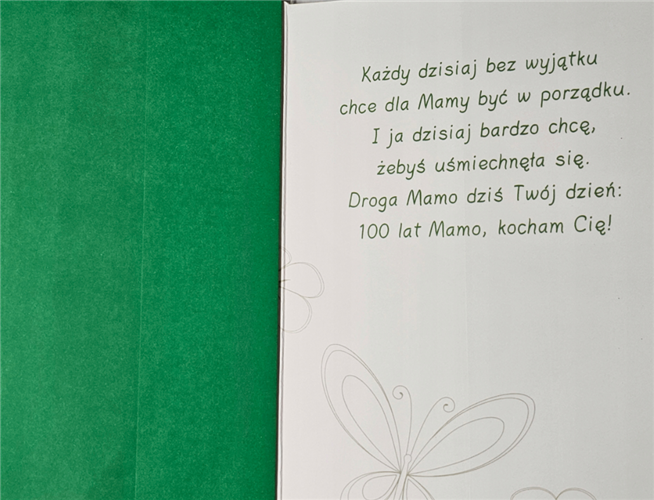 Każdy dzisiaj bez wyjątku
chce dla Mamy być w porządku.
I ja dzisiaj bardzo chcę,
żebyś uśmiechnęła się.
Droga Mamo dziś Twój dzień:
100 lat Mamo, kocham Cię!